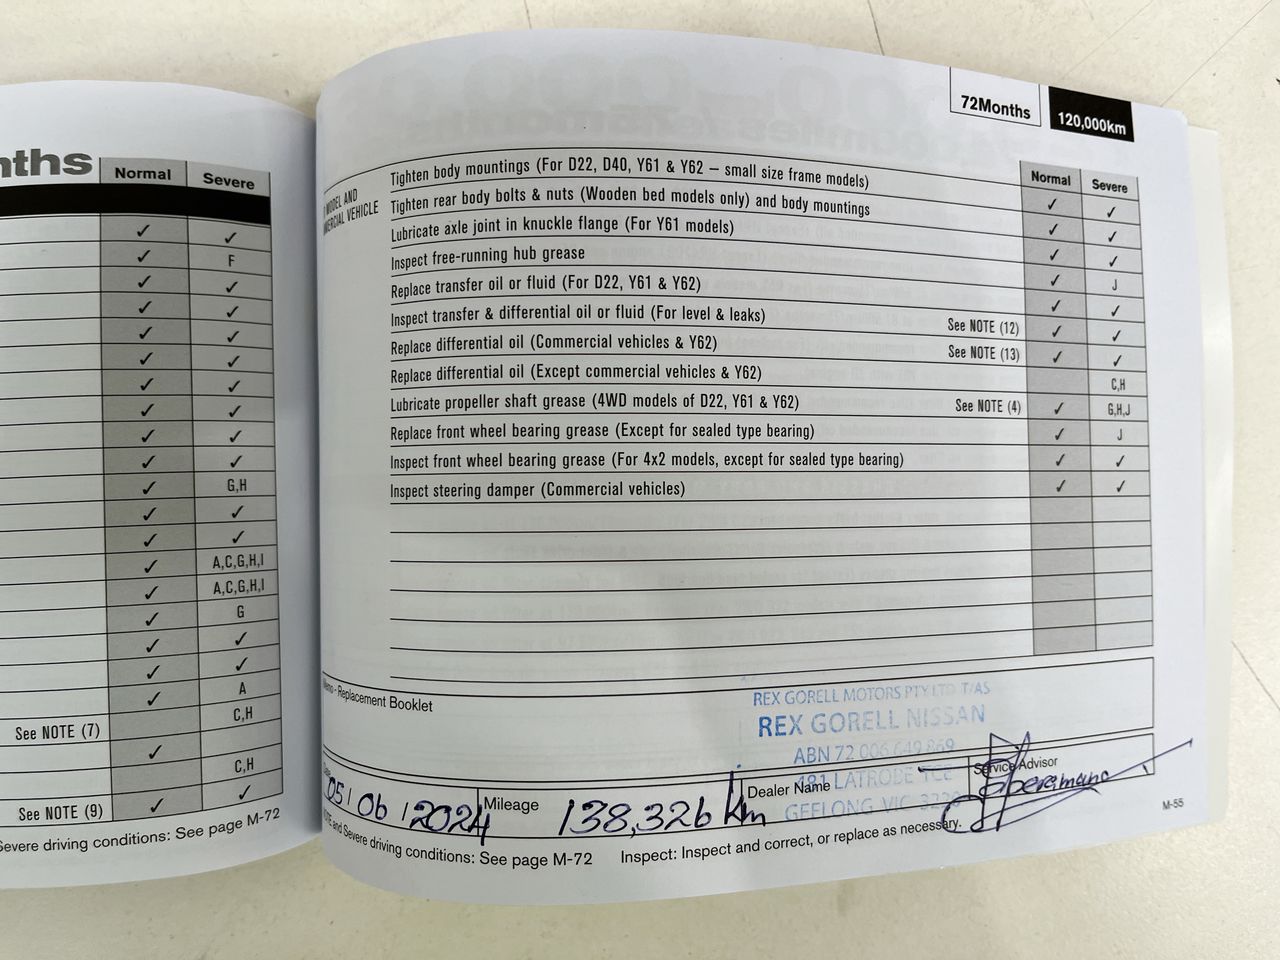 nths
Normal Severe
✓ ✓
✓ F
✓ ✓
✓ ✓
✓ ✓
✓ ✓
✓ ✓
✓ ✓
✓ ✓
✓ ✓
✓ G,H
✓ ✓
✓ ✓
✓ A,C,G,H,I
✓ A,C,G,H,I
✓ G
✓ ✓
✓ ✓
✓ A
See NOTE (7) C,H
✓
C,H
See NOTE (9) ✓ ✓
Severe driving conditions: See page M-72
72Months 120,000km
Normal Severe
MODEL AND
VEHICLE
Tighten body mountings (For D22, D40, Y61 & Y62 – small size frame models) ✓ ✓
Tighten rear body bolts & nuts (Wooden bed models only) and body mountings ✓ ✓
Lubricate axle joint in knuckle flange (For Y61 models) ✓ ✓
Inspect free-running hub grease ✓ J
Replace transfer oil or fluid (For D22, Y61 & Y62) ✓ ✓
Inspect transfer & differential oil or fluid (For level & leaks) See NOTE (12) ✓ ✓
Replace differential oil (Commercial vehicles & Y62) See NOTE (13) ✓ ✓
Replace differential oil (Except commercial vehicles & Y62) C,H
Lubricate propeller shaft grease (4WD models of D22, Y61 & Y62) See NOTE (4) ✓ G,H,J
Replace front wheel bearing grease (Except for sealed type bearing) ✓ J
Inspect front wheel bearing grease (For 4x2 models, except for sealed type bearing) ✓ ✓
Inspect steering damper (Commercial vehicles) ✓ ✓
- Replacement Booklet
REX GORELL MOTORS PTY LTD T/AS
REX GORELL NISSAN
ABN 72 006 649 869
181 LATROBE TCE
GEELONG VIC 3220
05/06/2024 Mileage 138,326 km Dealer Name Service Advisor
and Severe driving conditions: See page M-72 Inspect: Inspect and correct, or replace as necessary.
M-55